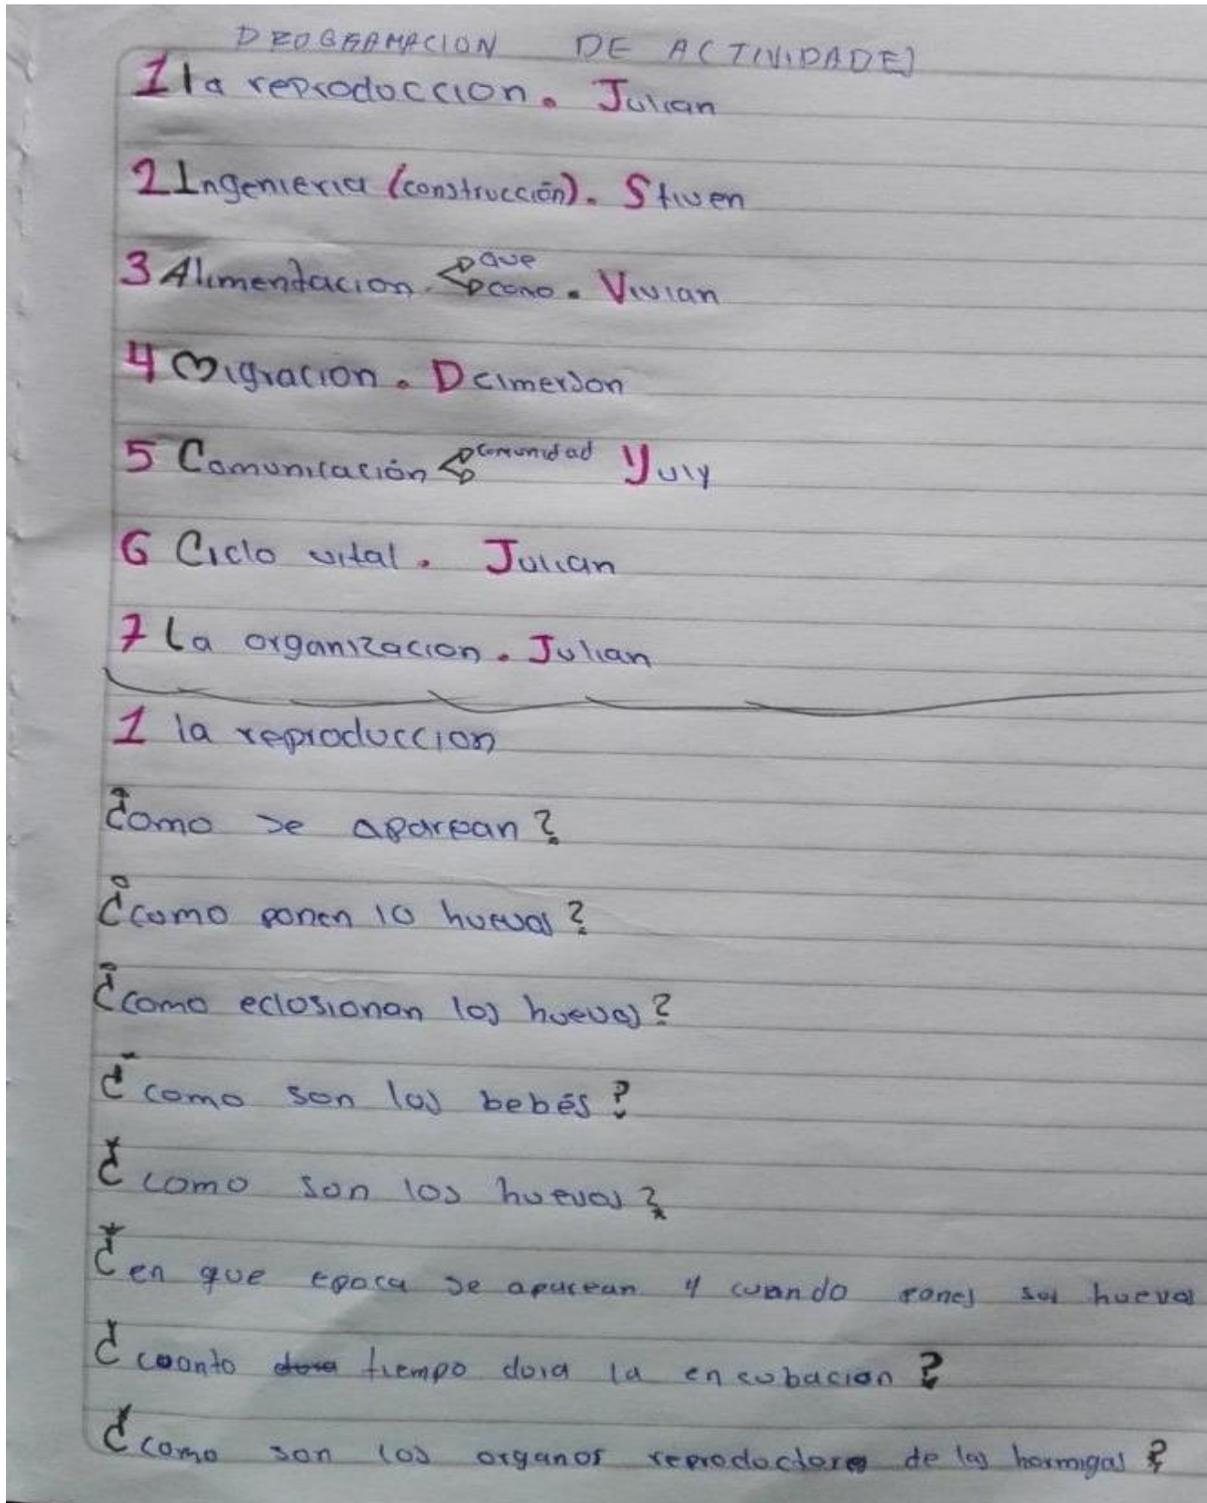 PROGRAMACION DE ACTIVIDADES
1 la reprodoccion. Julian
2 Ingenieria (construcción). Stiven
3 Alimentacion que como. Vivian
4 Migracion. Deimerson
5 Comunicación comunidad Yuly
6 Ciclo vital. Julian
7 La organizacion. Julian
1 la reproduccion
¿como se aparean?
¿como ponen lo huevos?
¿como eclosionan los huevos?
¿como son los bebés?
¿como son los huevos?
¿en que epoca se aparean y cuando ponen sus huevos
¿coanto dora tiempo dora la encubacion?
¿como son los organos reprodoctores de las hormigas?